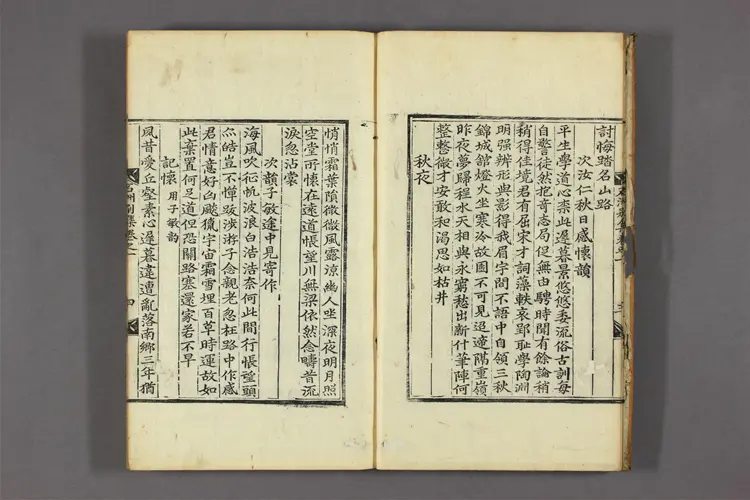 討悔踏名山路
次汝仁秋日感懷韻
平生學道心柰此遲暮景悠悠委流俗古訓每
自警徒然抱奇志局促無由騁時聞有餘論稍
稍得佳境君有屈宋才詞藻軼哀郢恥學陶淵
明强辨形與影得我眉宇間不語中自領三秋
錦城館燈火坐寒冷故園不可見迢遰隔重嶺
昨夜夢歸程水天相與永窮愁出斷什華陣何
整整微才安敢和渴思如枯井
秋夜
悄悄霜葉隕微微風露涼幽人坐深夜明月照
空堂所懷在遠道悵望川無梁依然念疇昔流
淚忽沾裳
次韻子敏途中見寄作
海風吹征帆波浪白浩浩奈何此間行悵望頭
尒皓豈不憚跋涉游子念親老忽枉路中作感
君情意好凶飈獵宇宙霜雪埋百草時運故如
此棄置何足道但恐關路塞還家若不早
記懷 用子敏韻
夙昔愛丘壑素心遲暮違遭亂落南鄉三年猶
石洲別集卷之一 四